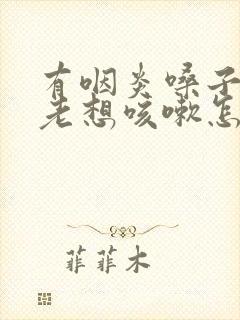 有咽炎嗓子
老想咳嗽怎
菲菲木